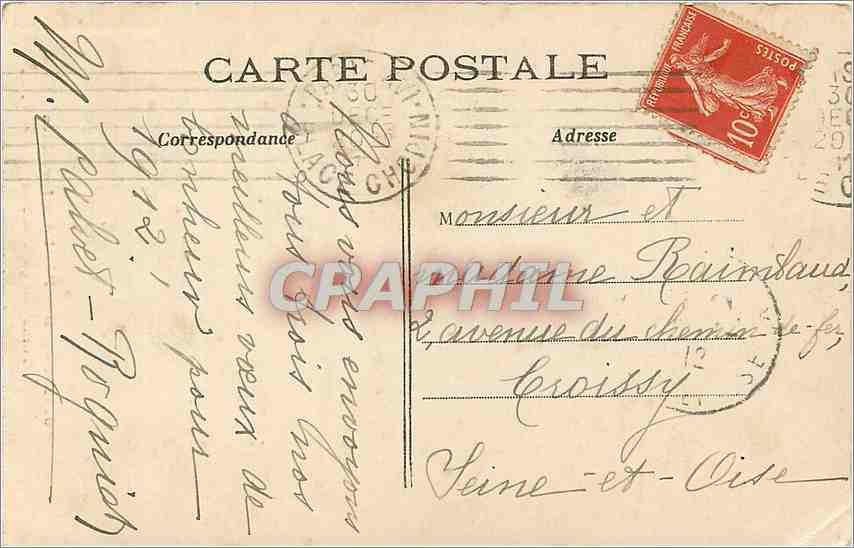 CARTE POSTALE
Correspondance
Adresse
RÉPUBLIQUE FRANÇAISE
POSTES
10c
Nous vous envoyons
à tous trois nos
meilleurs vœux de
bonheur pour
1912!
M.
Monsieur et
madame Raimbaud,
2, avenue du chemin-de-fer,
Croissy
Seine-et-Oise
CRAPHIL